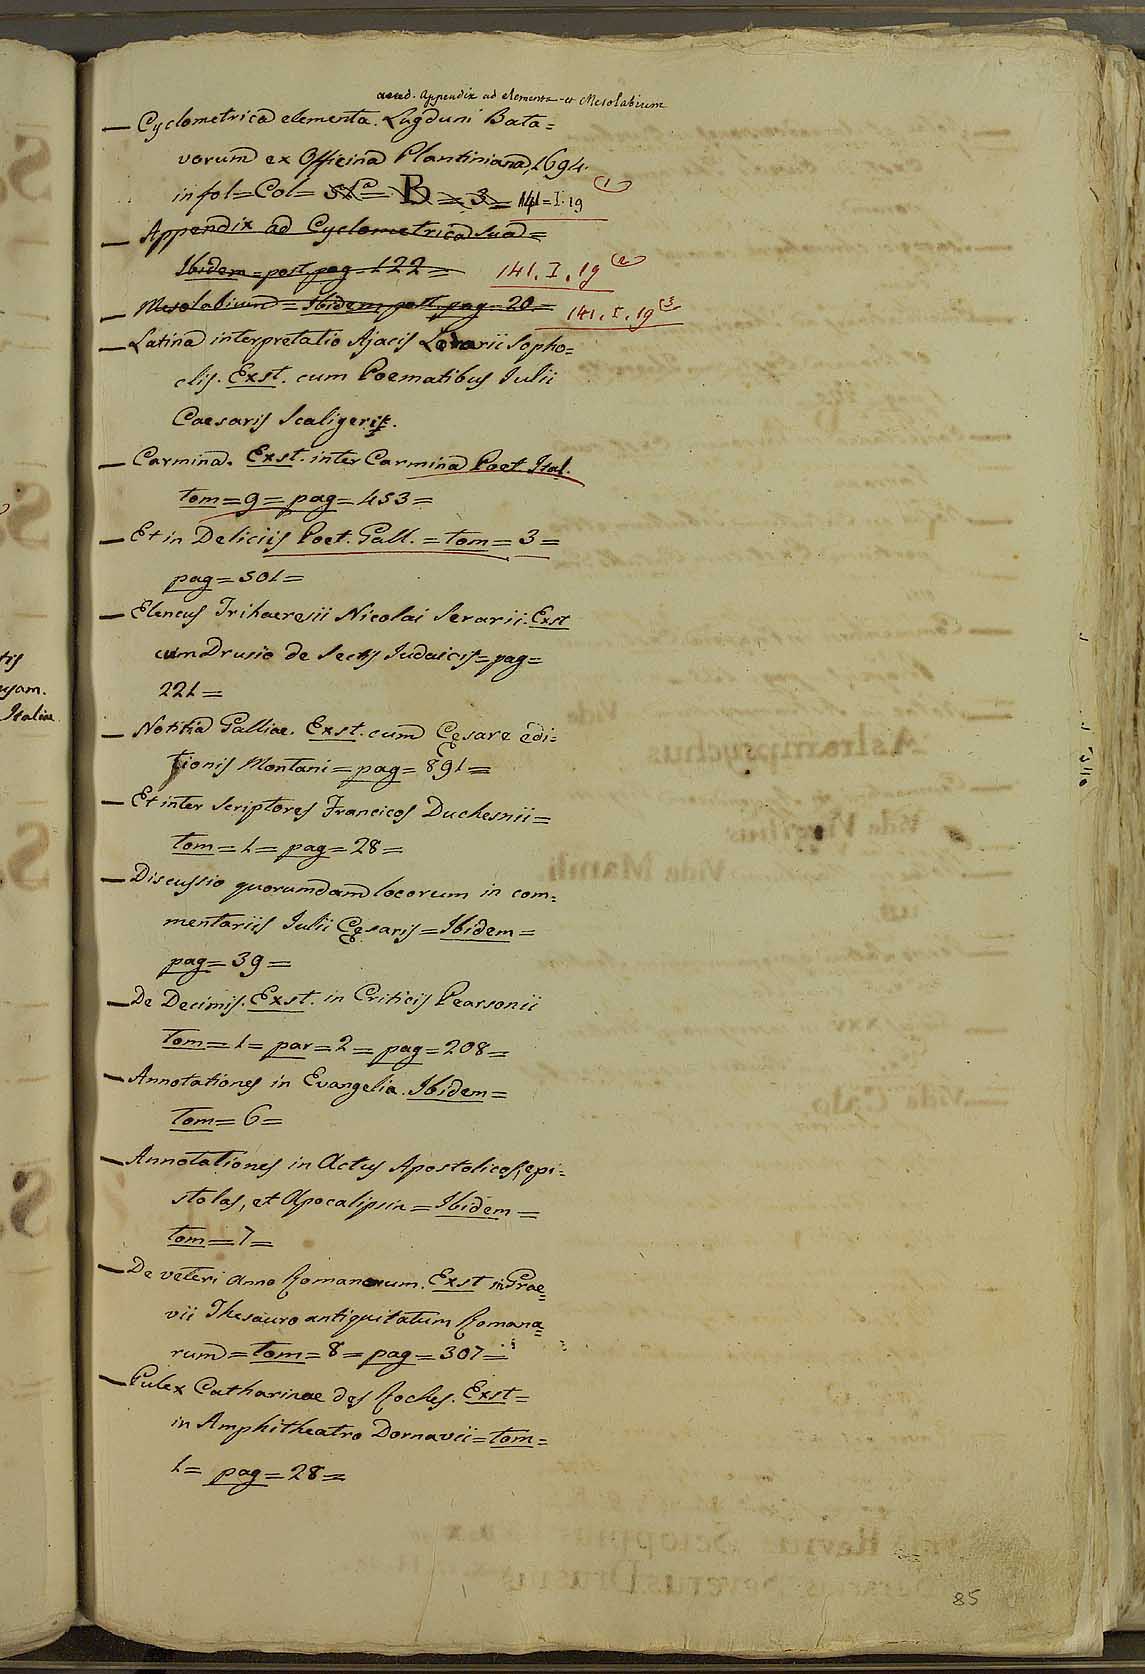 acced. Appendix ad elementa et Mesolabium
— Cyclometrica elementa. Lugduni Bata=
vorum ex Officina Plantiniana, 1694.
in fol = Col = B = 3 = 141 = I. 19 (1)
— Appendix ad Cyclometrica sua =
Ibidem = post pag = 122 = 141. I. 19 (2)
— Mesolabium = Ibidem post pag = 20 = 141. I. 19 (3)
— Latina interpretatio Ajacis Lorarii Sopho=
clis. Exst. cum Poematibus Iulii
Caesaris Scaligeri.
— Carmina. Exst. inter Carmina Poet. Ital.
tom = 9 = pag = 453 =
— Et in Deliciis Poet. Gall. = tom = 3 =
pag = 501 =
— Elencus Trihaeresii Nicolai Serarii. Exst
cum Drusio de Sectis Iudaicis = pag =
221 =
— Notitia Galliae. Exst. cum Cęsare edi=
tionis Montani = pag = 891 =
— Et inter Scriptores Francicos Duchesnii =
tom = 1 = pag = 28 =
— Discussio quorumdam locorum in com=
mentariis Iulii Cęsaris = Ibidem =
pag = 39 =
— De Decimis. Exst. in Criticis Pearsonii
tom = 1 = par = 2 = pag = 208 =
— Annotationes in Evangelia. Ibidem =
tom = 6 =
— Annotationes in Actus Apostolicos, epi=
stolas, et Apocalipsin = Ibidem =
tom = 7 =
— De veteri anno Romanorum. Exst in Grae=
vii Thesauro antiquitatum Romana=
rum = tom = 8 = pag = 307 =
— Pulex Catharinae des Roches. Exst =
in Amphitheatro Dornavii = tom =
1 = pag = 28 =
85